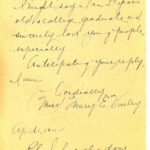 I might say I am 55 years
old, a college graduate and
sincerely love young people
especially
Anticipating your reply,
I am
Cordially
Miss Mary E.
Address: